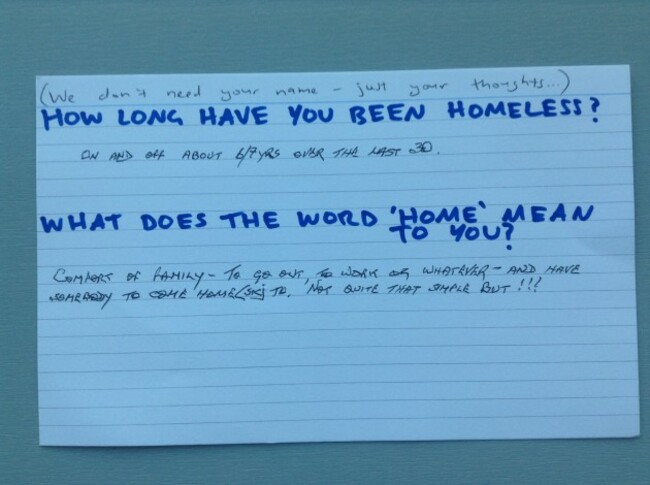 (We don't need your name - just your thoughts...)
HOW LONG HAVE YOU BEEN HOMELESS?
ON AND OFF ABOUT 6/7YRS OVER THE LAST 30.
WHAT DOES THE WORD 'HOME' MEAN
TO YOU?
COMFORT OF FAMILY - TO GO OUT, TO WORK OR WHATEVER - AND HAVE
SOMEBODY TO COME HOME TO. NOT QUITE THAT SIMPLE BUT!!!